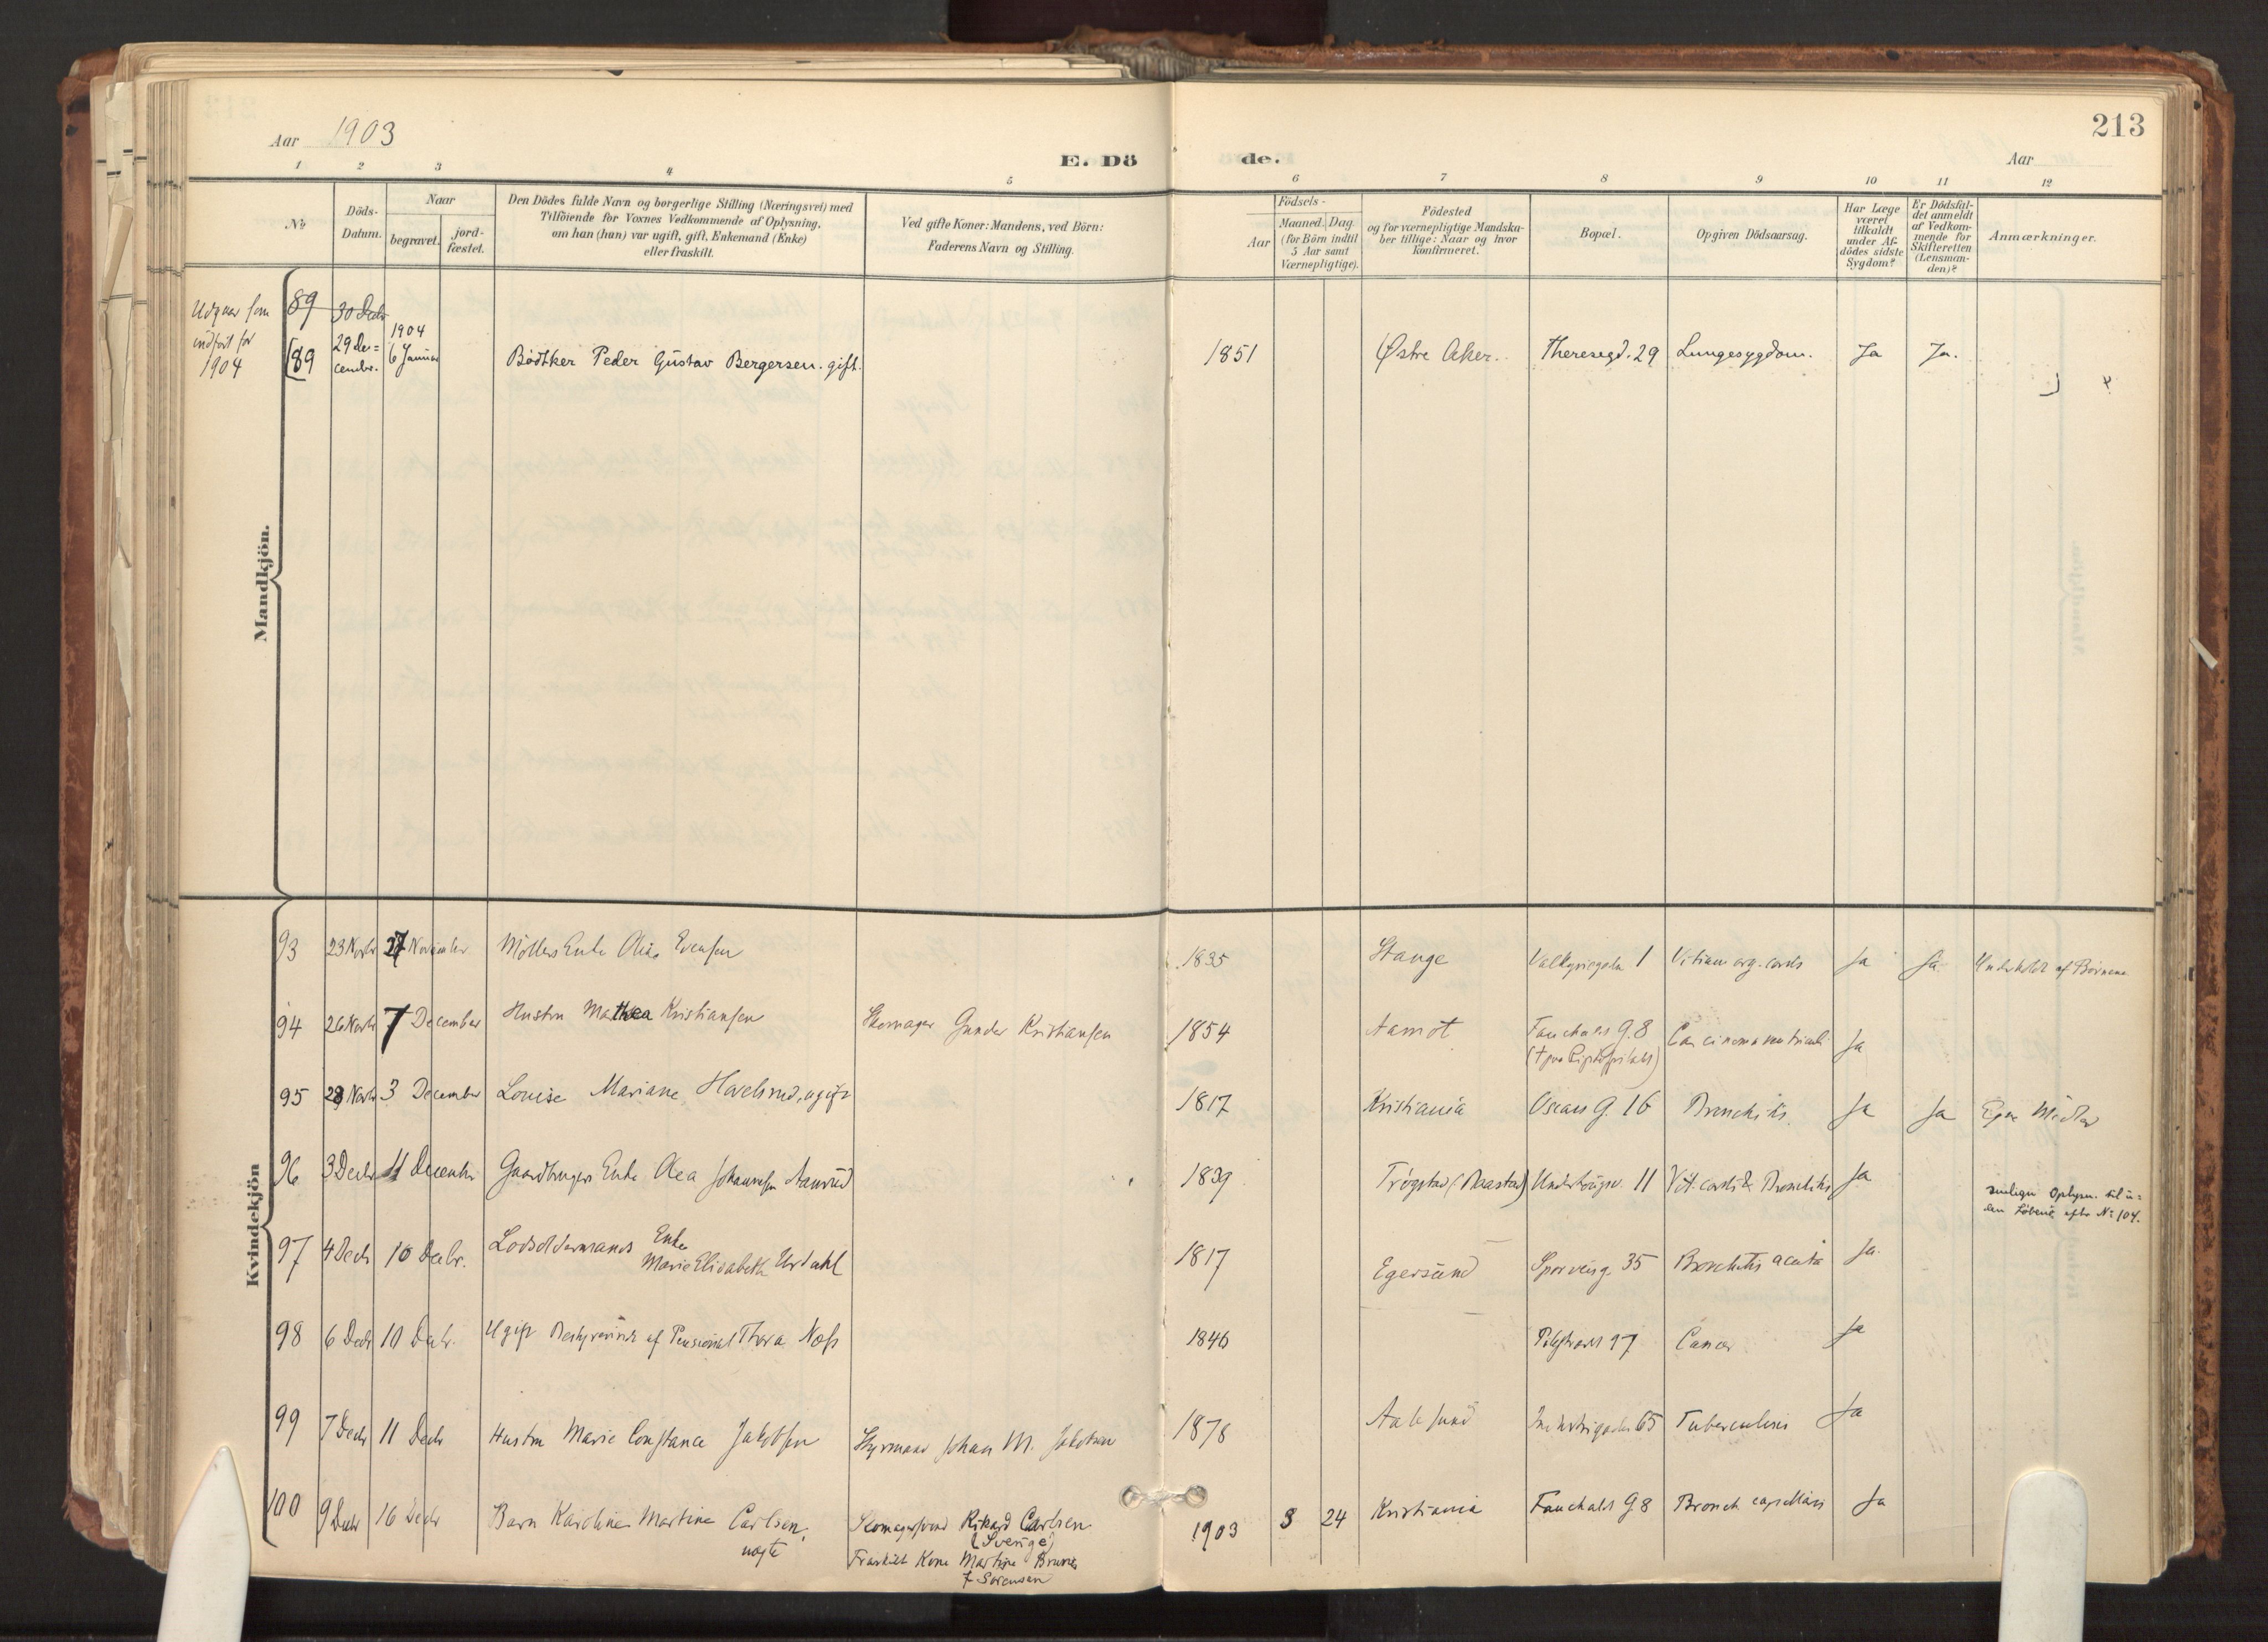 Aar 1903
E. Dö
de.
Aar
213
1 2 3 4 5 6 7 8 9 10 11 12
No
Döds-
Datum.
Naar
begravet.
jord-
fæstet.
Den Dödes fulde Navn og borgerlige Stilling (Næringsvei) med
Tilföiende for Voxnes Vedkommende af Oplysning,
om han (hun) var ugift, gift, Enkemand (Enke)
eller fraskilt.
Ved gifte Koner: Mandens, ved Börn:
Faderens Navn og Stilling.
Födsels-
Aar
Maaned.
Dag
(for Börn indtil
5 Aar samt
Værnepligtige).
Födested
og for værnepligtige Mandska-
ber tillige: Naar og hvor
konfirmeret.
Bopæl.
Opgiven Dödsaarsag.
Har Læge
været
tilkaldt
under Af-
dödes sidste
Sygdom?
Er Dödsfal-
det anmeldt
af Vedkom-
mende for
Skifteretten
(Lensman-
den)?
Anmærkninger.
Mandkjön.
Udgaar som
indført for
1904
89 30 Decbr
89 29 De=
cembr. 1904
6 Januar Bødtker Peder Gustav Bergersen. gift. 1851 Østre Aker. Theresegd. 29 Lungesygdom. Ja Ja.
Kvindekjön
93 23 Novbr 27 November Möllers Enke Evensen 1835 Stange 1 Vitium org. cordis Ja Ja Underholdt af Börnene
94 26 Novbr 7 December Hustru Mathea Kristiansen Skomager Gunder Kristiansen 1854 Aamot Fauchalds G. 8 Carcinoma ventriculi Ja
95 28 Novbr 3 December Louise Mariane Hovelsrud, ugift 1817 Kristiania Oscars G. 16 Bronchitis. Ja Ja Egne Midler
96 3 Decbr 11 December Gaardbrugers Enke Olea Johannesen Aamrud 1839 Trögstad (Baastad) 11 Vit. cordis & Bronchitis Ja
97 4 Decbr 10 Decbr. Lodsoldermands Enke
Marie Elisabeth Urdahl 1817 Egersund Sporveisg. 35 Bronchitis acuta Ja.
98 6 Decbr 10 Decbr. Ugift Bestyrerinde af Pensionat Thora Næss 1846 Pilestrædet 97 Cancer Ja
99 7 Decbr 11 Decbr Hustru Marie Constance Jakobsen Styrmand Johan M. Jakobsen 1878 Aalesund Industrigaden 65 Tuberculosis Ja
100 9 Decbr 16 Decbr Barn Karoline Martine Carlsen,
uægte Skomagersvend Rikard Carlsen
(Sverige)
Fraskilt Kone Martine
f. Sørensen 1903 3 24 Kristiania Fauchalds G. 8 Bronch. capillaris Ja